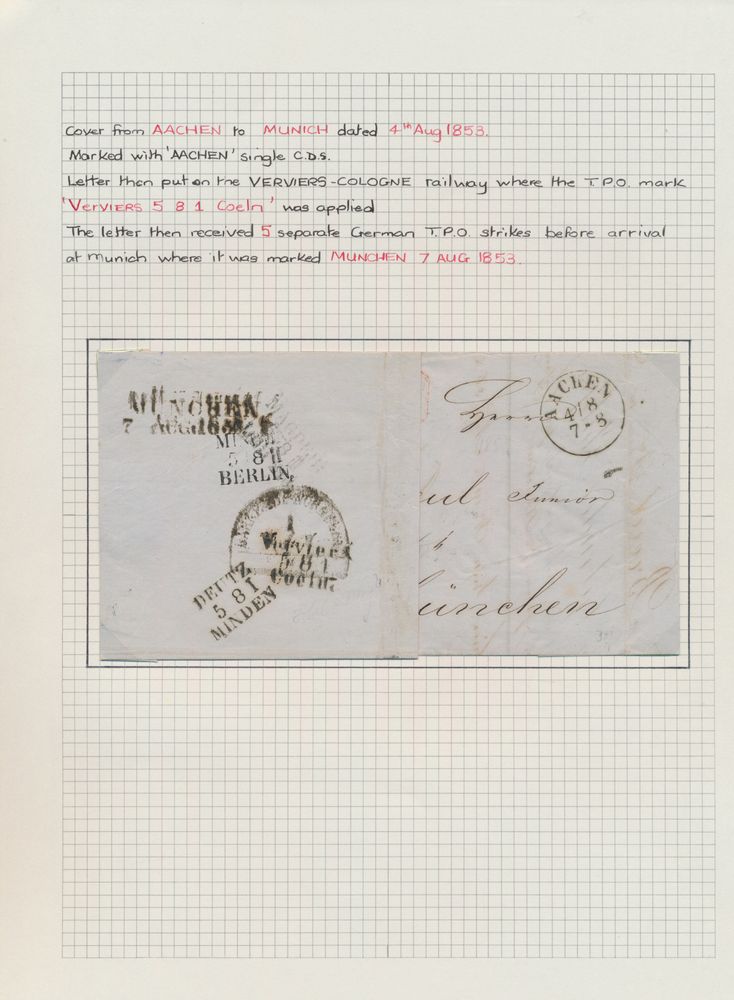 Cover from AACHEN to MUNICH dated 4th Aug 1853.
Marked with 'AACHEN' single C.D.S.
Letter then put on the VERVIERS-COLOGNE railway where the T.P.O. mark
'Verviers 5 8 1 Coeln' was applied
The letter then received 5 separate German T.P.O. strikes before arrival
at munich where it was marked MUNCHEN 7 AUG 1853.
MÜNCHEN
7 AUG. 1853
MINDEN
5 8 II
BERLIN.
1
Verviers
5 8 1
Coeln.
DEUTZ
5 8 I
MINDEN
AACHEN
4/8
7-8
Herrn
Junior
München